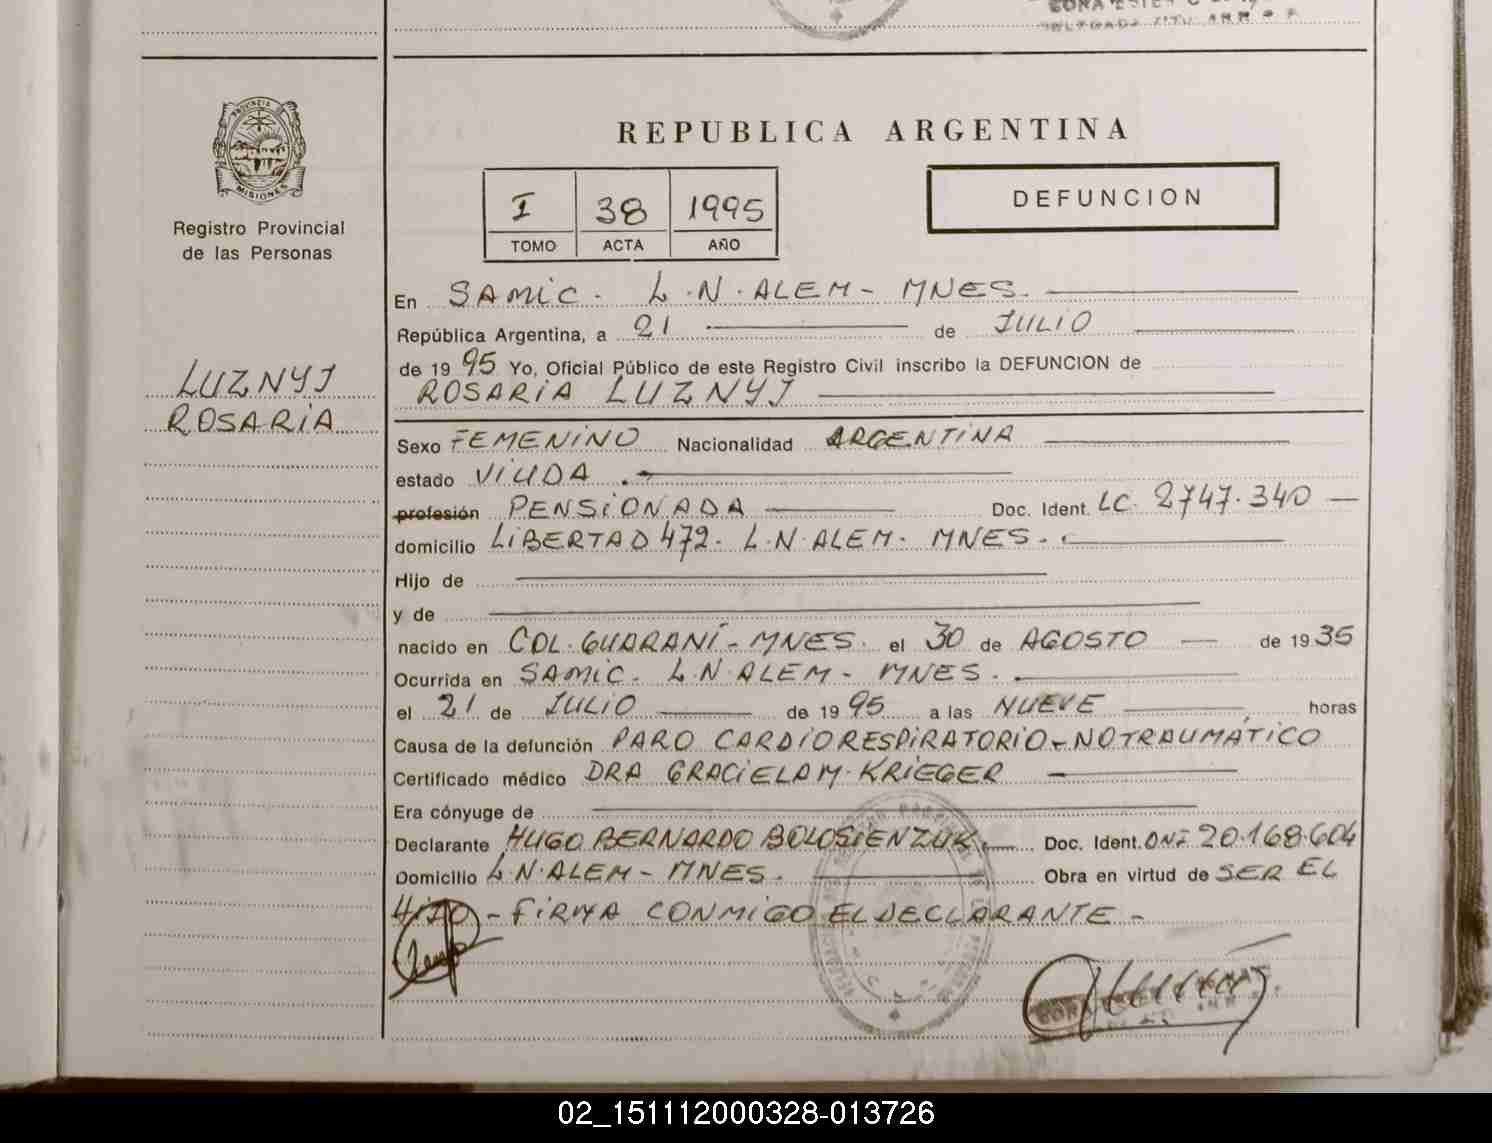 PROVINCIA DE
MISIONES
Registro Provincial
de las Personas
LUZNYJ
ROSARIA
REPUBLICA ARGENTINA
I 38 1995
TOMO ACTA AÑO
DEFUNCION
En SAMIC. L.N.ALEM - MNES.
República Argentina, a 21 de JULIO
de 1995 Yo, Oficial Público de este Registro Civil inscribo la DEFUNCION de
ROSARIA LUZNYJ
Sexo FEMENINO Nacionalidad ARGENTINA
estado VIUDA.
profesión PENSIONADA Doc. Ident. LC. 2747.340
domicilio LIBERTAD 472. L.N ALEM. MNES.
Hijo de
y de
nacido en COL. GUARANÍ - MNES. el 30 de AGOSTO de 1935
Ocurrida en SAMIC. L.N.ALEM - MNES.
el 21 de JULIO de 1995 a las NUEVE horas
Causa de la defunción PARO CARDIORESPIRATORIO - NO TRAUMATICO
Certificado médico DRA GRACIELA M. KRIEGER
Era cónyuge de
Declarante HUGO BERNARDO BOLOSIENZUK Doc. Ident. DNI 20.168.604
Domicilio L.N.ALEM - MNES. Obra en virtud de SER EL
HIJO - FIRMA CONMIGO EL DECLARANTE -
02_151112000328-013726